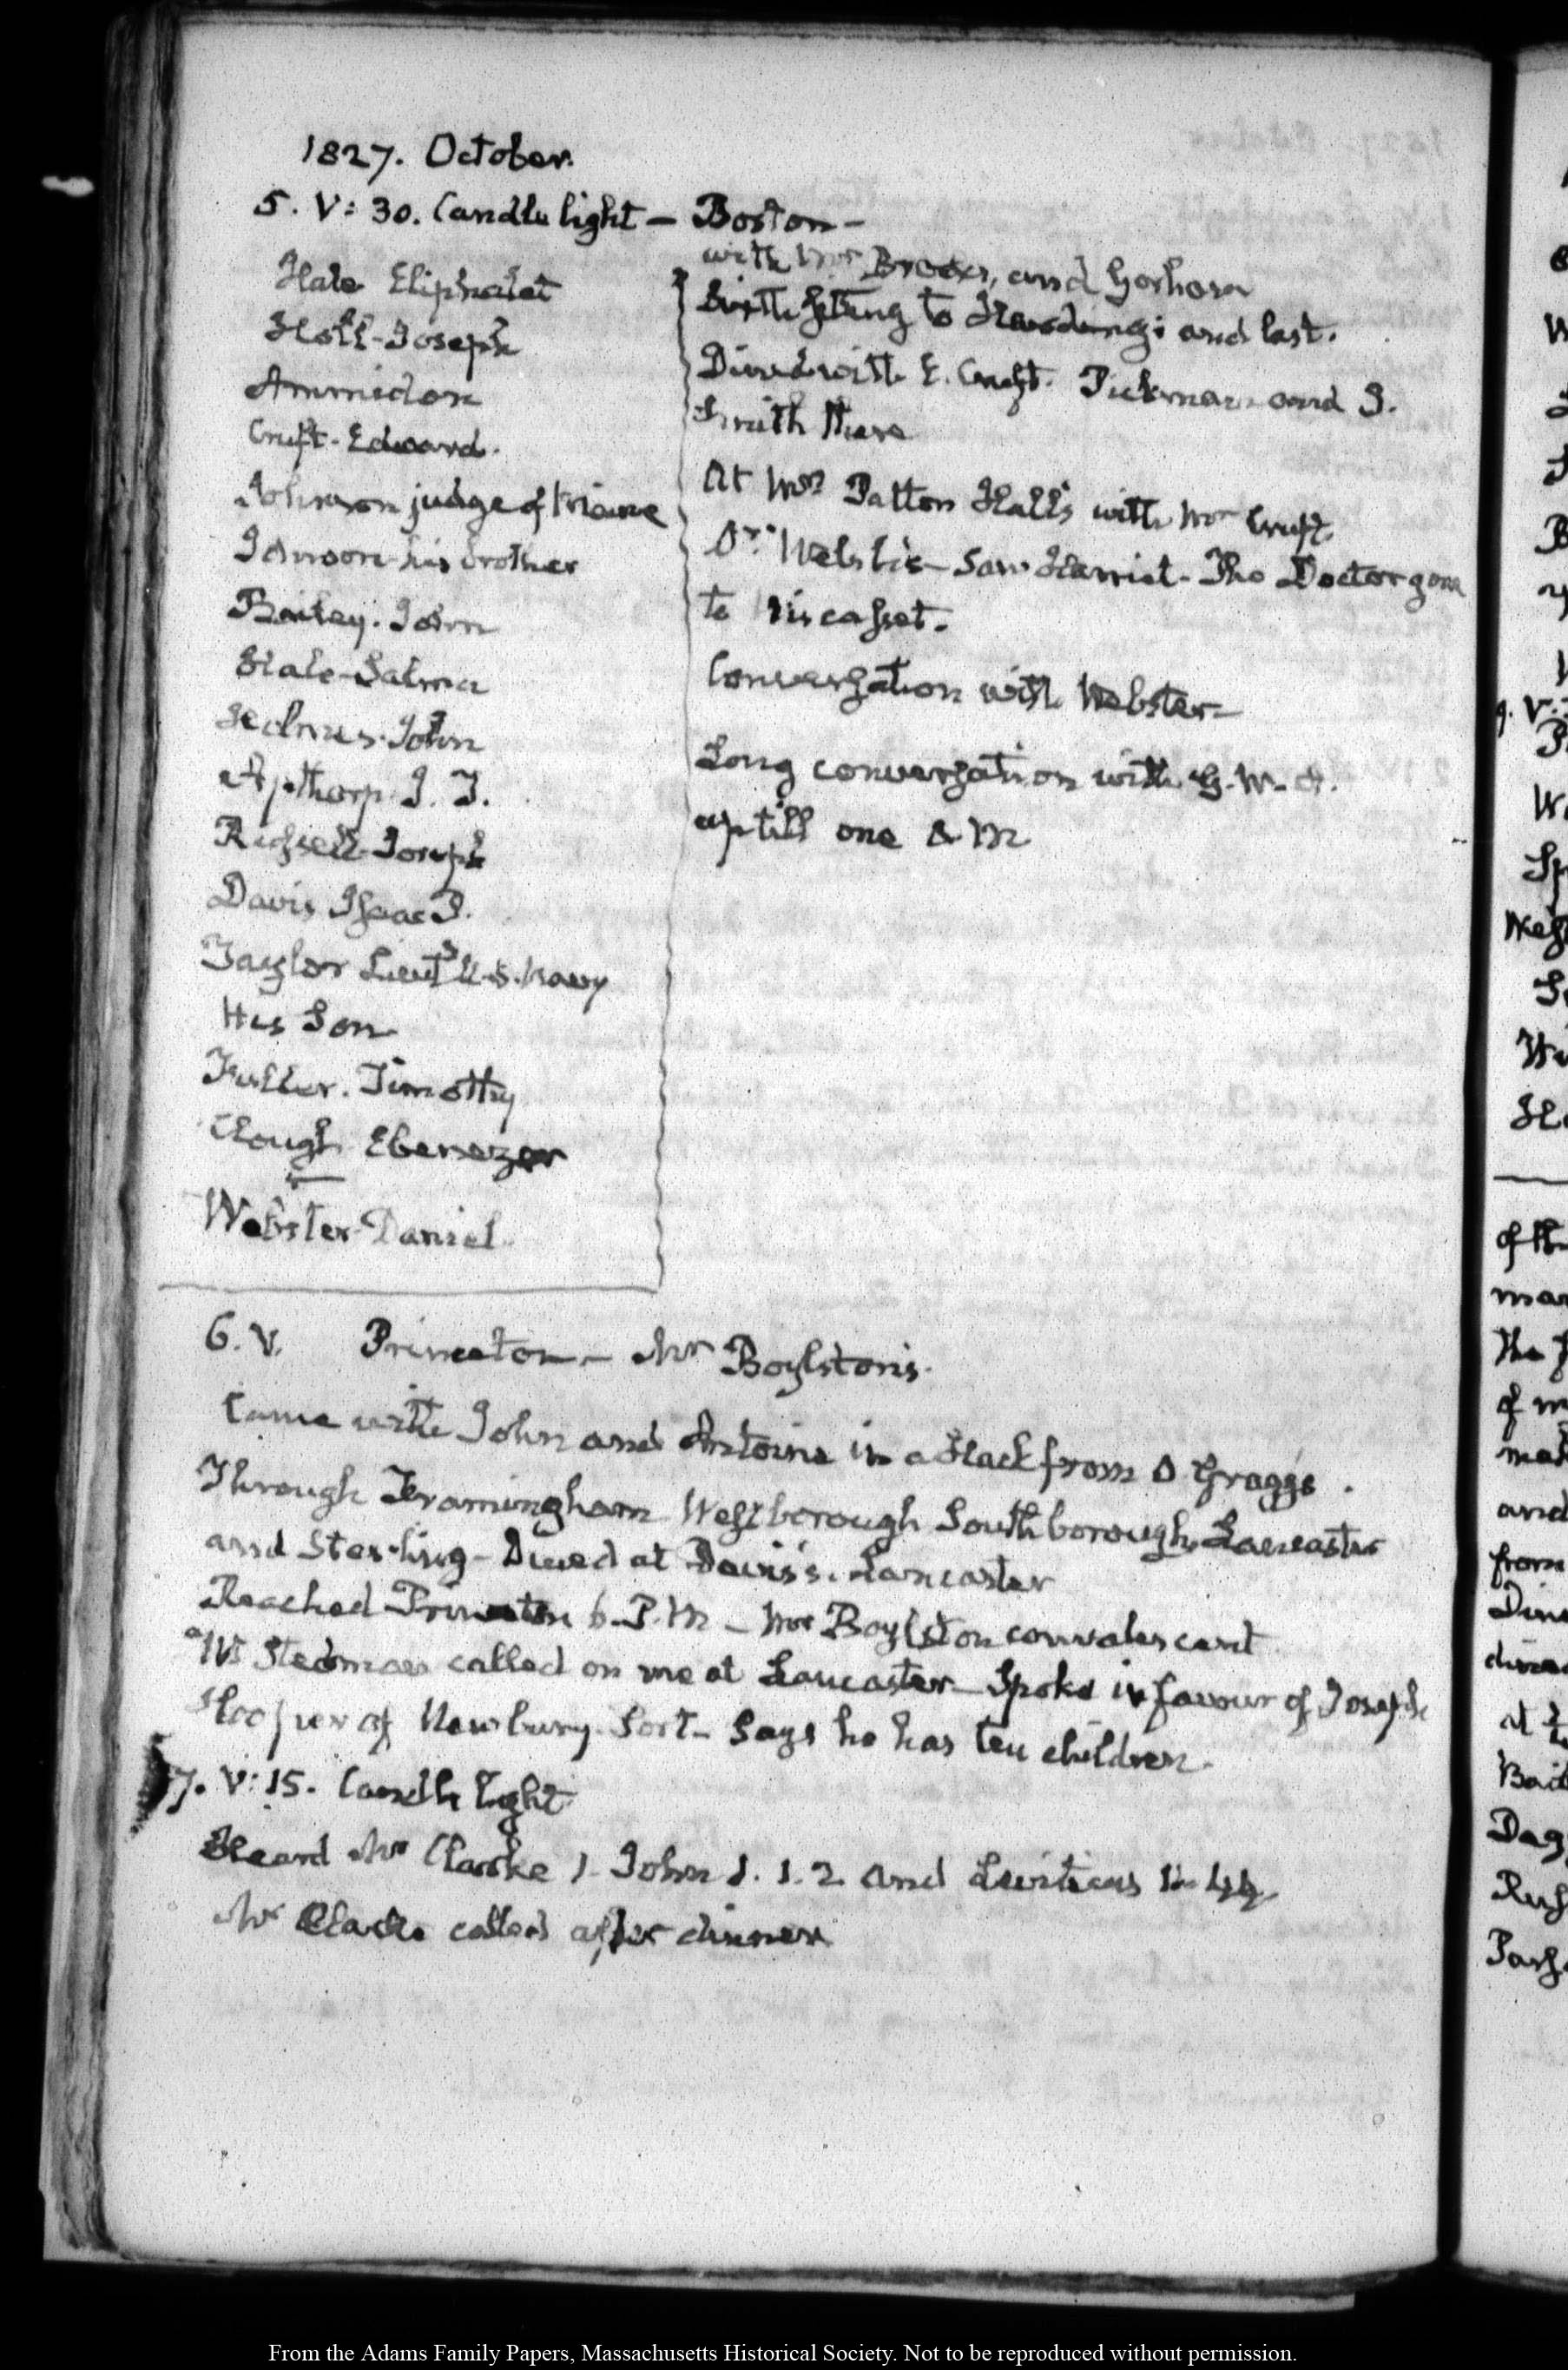 1827. October.
5. V: 30. Candle light — Boston —
Hale Eliphalet
Hall - Joseph
Ammidon
Cruft - Edward.
Johnson judge of Maine
Johnson his brother
Bailey. John
Hale - Salma
Holmes. John
Apthorp J. T.
Russell Joseph
Davis Isaac P.
Taylor Lieutt U.S. Navy
His Son
Fuller. Timothy
Clough Ebenezer
Webster Daniel
with Mrs and Gorham
Sixth sitting to Harding; and last.
Dined with E. Cruft. Pickman and J.
Smith there
At Mrs Patton Hall's with Mr Cruft.
Dr. Welsh's — Saw Harriet - The Doctor gone
to Wiscasset.
Conversation with Webster —
Long conversation with G. W. A.
up till one A M
6. V. Princeton — Mr Boylston's.
Came with John and Antoine in a Hack from D Graggs.
Through Framingham Westborough Southborough, Lancaster
and Sterling - Dined at Davis's. Lancaster
Reached Princeton 6. P.M — Mr Boylston convalescent
W Stedman called on me at Lancaster — Spoke in favour of Joseph
Hooper of Newbury-Port - Says he has ten children.
7. V: 15. Candle light
Heard Mr Clarke 1. John 1. 1. 2 and Leviticus
Mr Clarke called after dinner
From the Adams Family Papers, Massachusetts Historical Society. Not to be reproduced without permission.